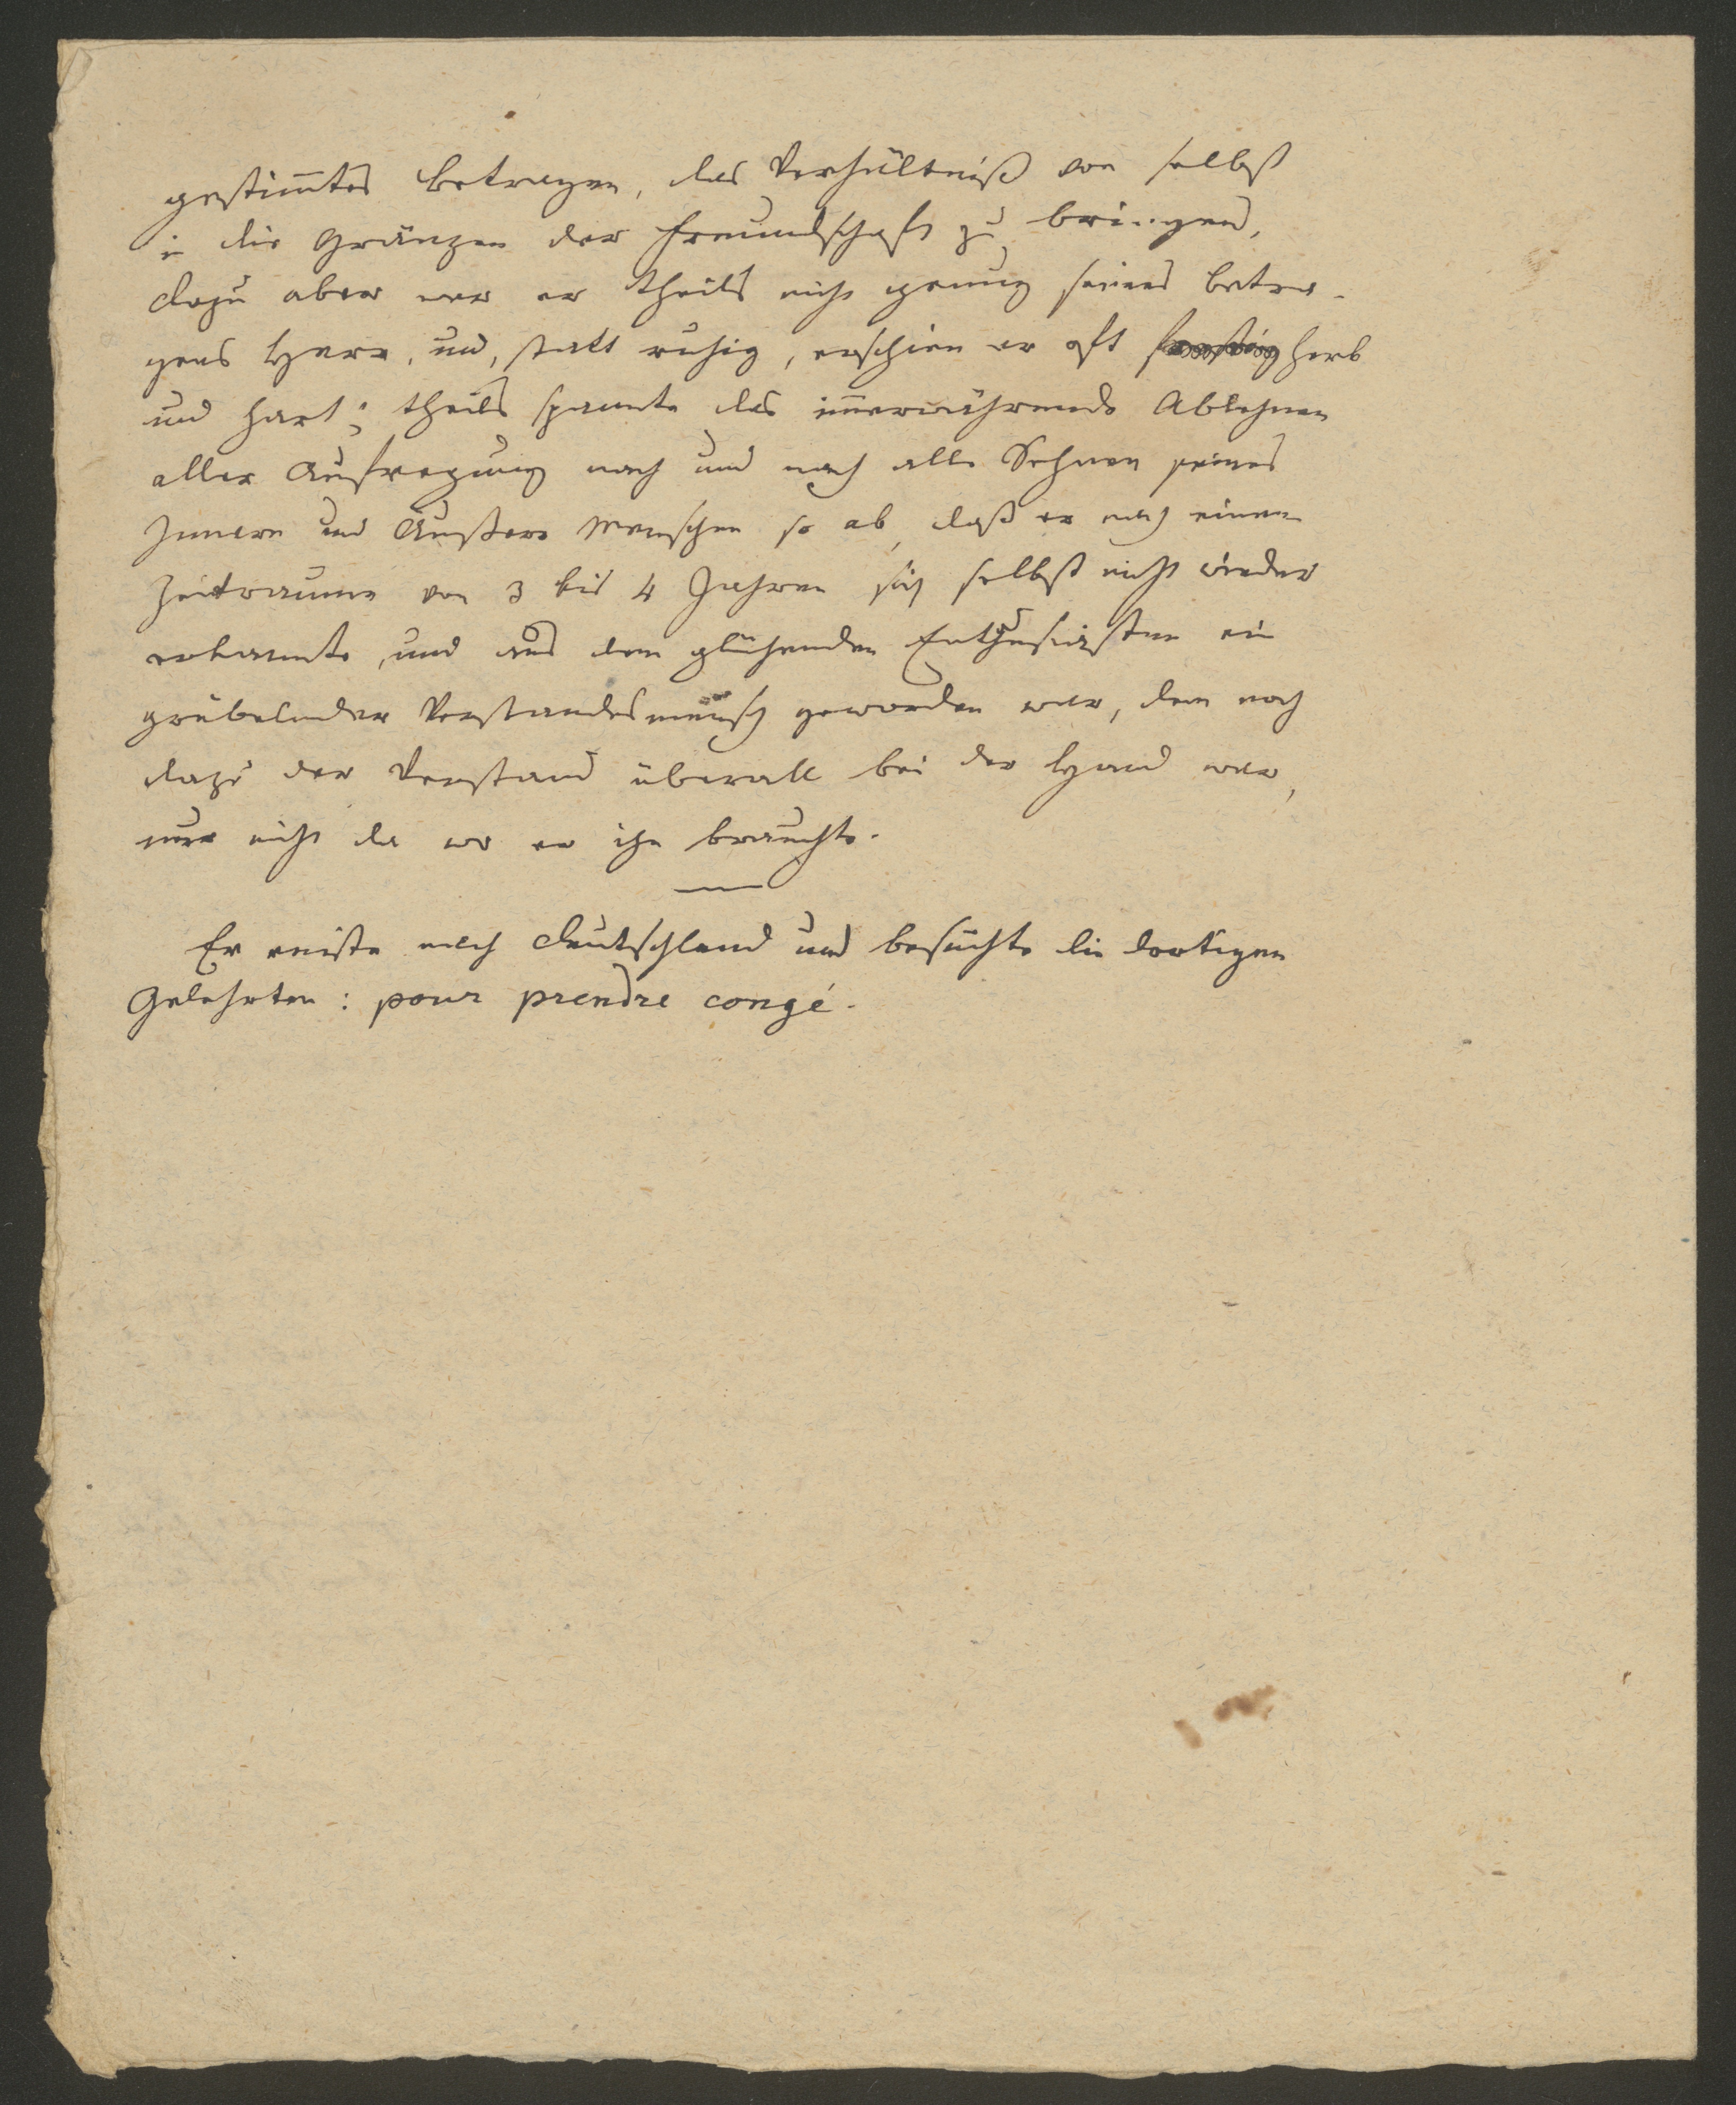 gestim̄tes Betragen, das Verhältniß von selbst
in die Gränzen der Freundschaft zu bringen,
dazu aber war er theils nicht genug seines Betra-
gens Herr, und, statt ruhig, erschien er oft herb
und hart; theils spannte das im̄erwährende Ablehnen
aller Aufregung nach und nach alle Sehnen seines
Innern und Äußern Menschen so ab, daß er nach einem
Zeitraume von 3 bis 4 Jahren sich selbst nicht wieder
erkannte, und aus dem glühenden Enthusiasten ein
grübelnder Verstandesmensch geworden war, dem noch
dazu der Verstand überall bei der Hand war,
nur nicht da wo er ihn brauchte.
Er reiste nach Deutschland und besuchte die dortigen
Gelehrten: pour prendre congé.